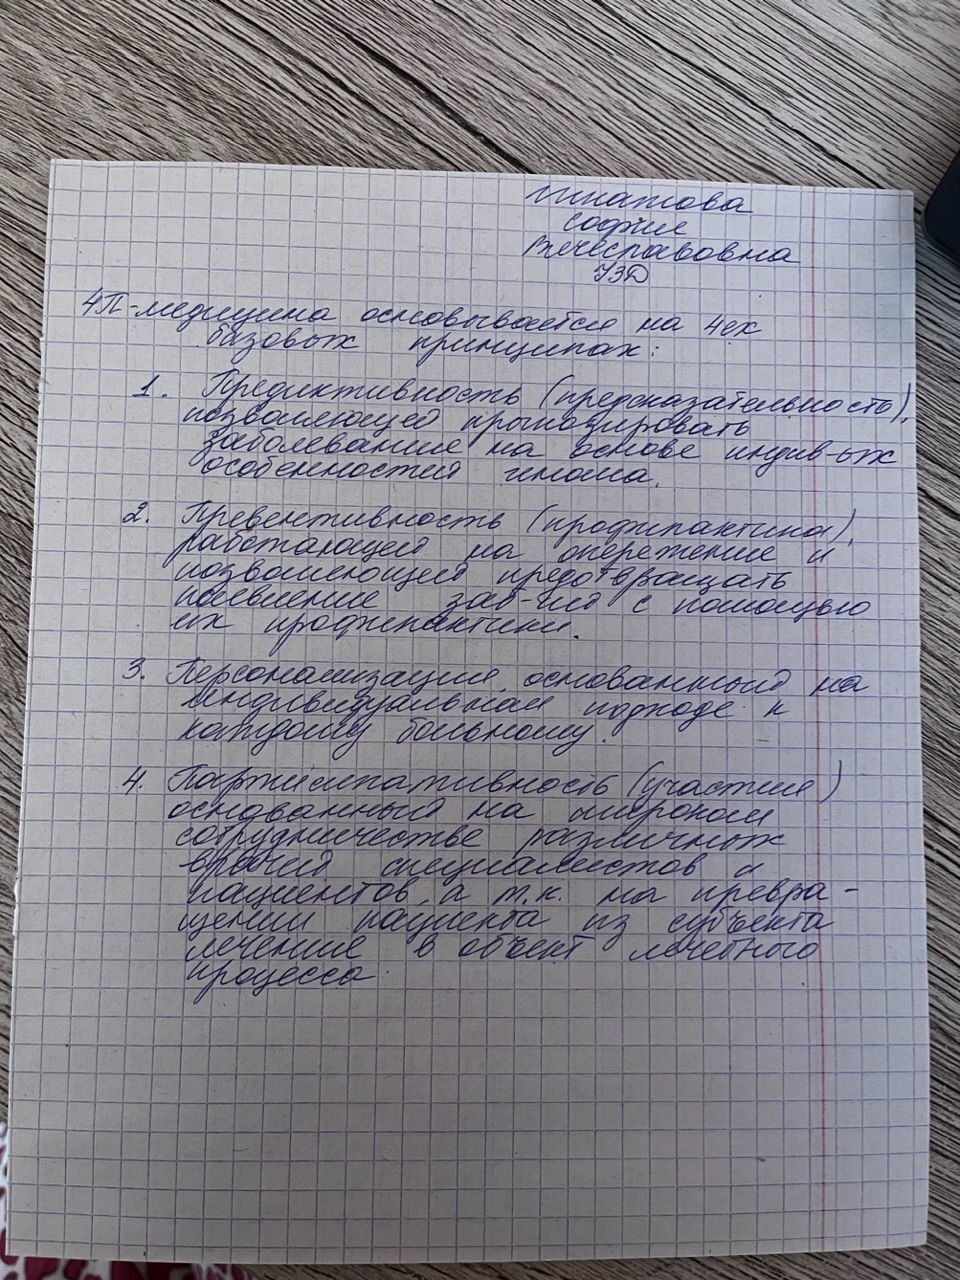 Игнатова
София
Вячеславовна
УЗД
4П-медицина основывается на 4ех
базовых принципах:
1. Предиктивность (предсказательность),
позволяющей прогнозировать
заболевание на основе индив-ых
особенностей генома.
2. Превентивность (профилактика),
работающей на опережение и
позволяющей предотвращать
появление заб-ний с помощью
их профилактики.
3. Персонализация, основанный на
индивидуальном подходе к
каждому больному.
4. Партисипативность (участие)
основанный на широком
сотрудничестве различных
врачей специалистов и
пациентов, а т.к. на превра-
щении пациента из субъекта
лечение в объект лечебного
процесса